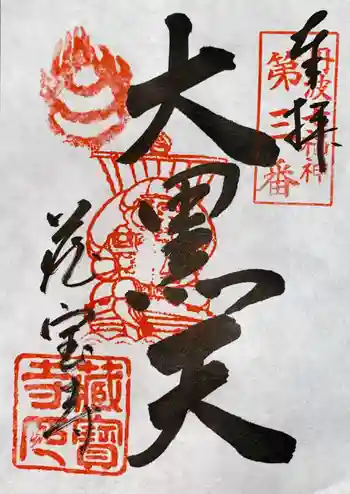 奉拝
丹波七福神
第三番
大黒天
蔵宝寺
蔵寶寺印